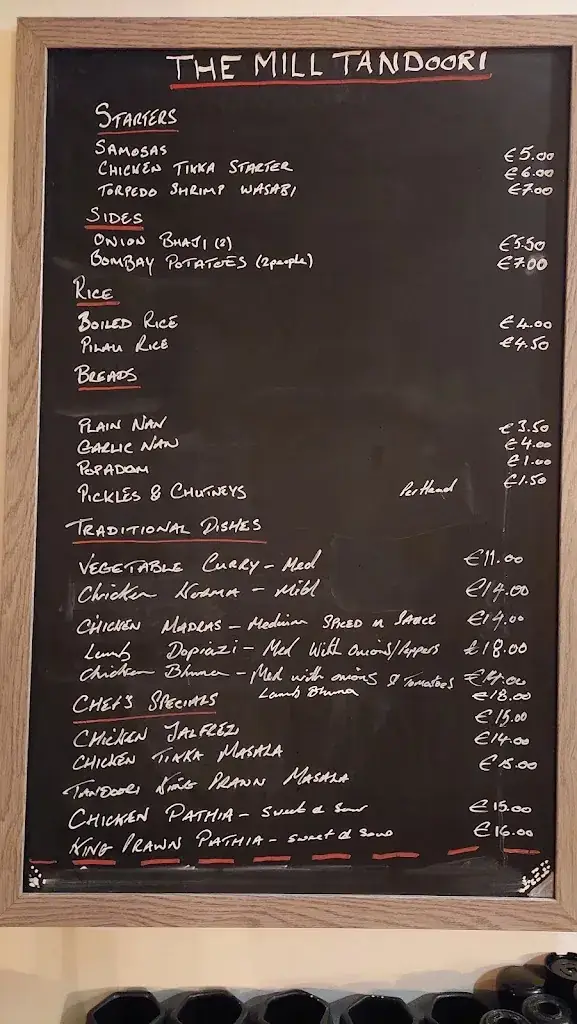 THE MILL TANDOORI
STARTERS
SAMOSAS €5.00
CHICKEN TIKKA STARTER €6.00
TORPEDO SHRIMP WASABI €7.00
SIDES
ONION BHAJI (2) €5.50
BOMBAY POTATOES (2 people) €7.00
RICE
BOILED RICE €4.00
PILAU RICE €4.50
BREADS
PLAIN NAN €3.50
GARLIC NAN €4.00
POPADOM €1.00
PICKLES & CHUTNEYS Per Head €1.50
TRADITIONAL DISHES
VEGETABLE CURRY - Med €11.00
Chicken Korma - Mild €14.00
CHICKEN MADRAS - Medium SPICED IN SAUCE €14.00
Lamb Dopiazi - Med With Onions/Peppers €18.00
Chicken Bhuna - Med with onions & Tomatoes €14.00
Lamb Bhuna €18.00
CHEF'S SPECIALS
CHICKEN JALFREZI €15.00
CHICKEN TIKKA MASALA €14.00
TANDOORI KING PRAWN MASALA €15.00
CHICKEN PATHIA - Sweet & Sour €15.00
KING PRAWN PATHIA - Sweet & Sour €16.00